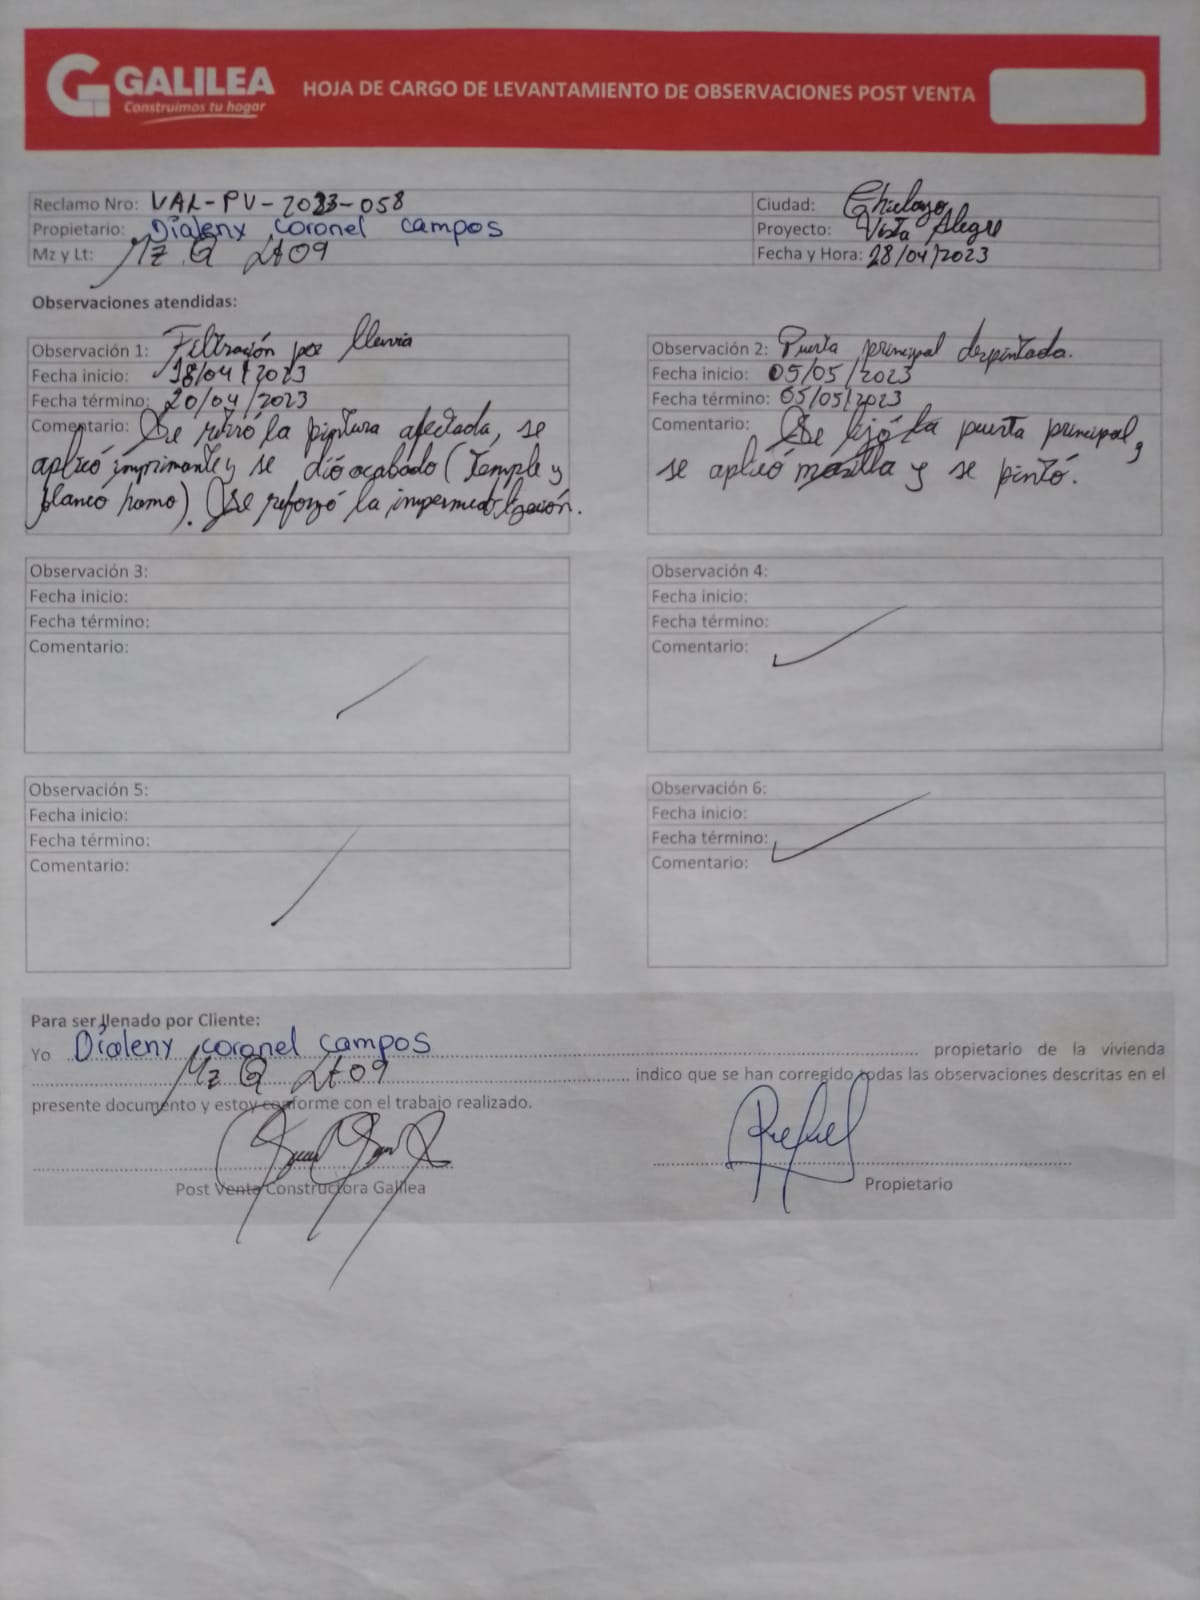 GALILEA
Construimos tu hogar
HOJA DE CARGO DE LEVANTAMIENTO DE OBSERVACIONES POST VENTA
Reclamo Nro: VAL-PV-2023-058
Ciudad: Chiclayo
Propietario: Díaleny coronel campos
Proyecto: Vista Alegre
Mz y Lt: Mz Q Lt 09
Fecha y Hora: 28/04/2023
Observaciones atendidas:
Observación 1: Filtración por lluvia
Fecha inicio: 18/04/2023
Fecha término: 20/04/2023
Comentario: Se retiró la pintura afectada, se
aplicó imprimante y se dió acabado (Temple y
blanco humo). Se reforzó la impermeabilización.
Observación 2: Puerta principal despintada.
Fecha inicio: 05/05/2023
Fecha término: 05/05/2023
Comentario: Se lijó la puerta principal,
se aplicó masilla y se pintó.
Observación 3:
Fecha inicio:
Fecha término:
Comentario:
Observación 4:
Fecha inicio:
Fecha término:
Comentario:
Observación 5:
Fecha inicio:
Fecha término:
Comentario:
Observación 6:
Fecha inicio:
Fecha término:
Comentario:
Para ser llenado por Cliente:
Yo Díaleny coronel campos propietario de la vivienda
Mz Q Lt 09 indico que se han corregido todas las observaciones descritas en el
presente documento y estoy conforme con el trabajo realizado.
Post Venta Constructora Galilea
Propietario